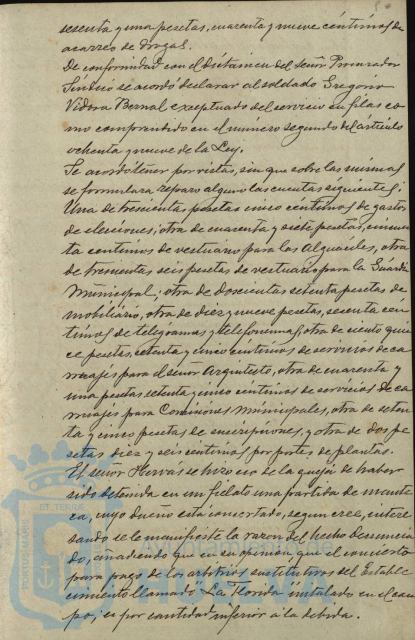 sesenta y una pesetas, cuarenta y nueve céntimos de
acarreo de drogas.
De conformidad con el dictamen del señor Procurador
Síndico se acordó declarar al soldado Gregorio
Vidora Bernal exceptuado del servicio en filas co-
mo comprendido en el número segundo del artículo
ochenta y nueve de la Ley.
Se acordó tener por vistas, sin que sobre las mismas
se formulara reparo alguno las cuentas siguientes:
Una de trescientas pesetas cinco céntimos de gastos
de elecciones, otra de cuarenta y siete pesetas, cincuen-
ta centimos de vestuario para los Alguaciles, otra
de trescientas seis pesetas de vestuario para la Guardia
Municipal, otra de doscientas setenta pesetas de
mobiliario, otra de diez y nueve pesetas, sesenta cén-
timos de telegramas y telefonemas, otra de ciento quin-
ce pesetas, setenta y cinco céntimos de servicios de ca-
rruajes para el señor Arquitecto, otra de cuarenta y
una pesetas setenta y cinco centimos de servicios de ca-
rruajes para Comisiones Municipales, otra de seten-
ta y cinco pesetas de suscripciones, y otra de dos pe-
setas diez y seis centimos, por portes de plantas.
El señor Hervas se hizo eco de la queja de haber
sido detenida en un fielato una partida de mante-
ca, cuyo dueño esta concertado, segun cree, intere-
sando se le manifieste la razon del hecho denuncia-
do, añadiendo que en su opinion, que el concierto
para pago de los arbitrios sustitutivos del Estable-
cimiento llamado "La Florida" instalado en el cam-
po, es por cantidad inferior á la debida.